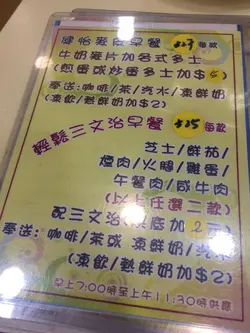 健怡麥皮早餐 $23 每款
牛奶麥片加各式多士
(煎蛋或炒蛋多士加$
奉送:咖啡/茶/汽水/凍鮮奶
(凍飲/熱鮮奶加$2)
輕鬆三文治早餐 $25 每款
芝士/鮮茄/
燒肉/火腿/雞蛋/
午餐肉/咸牛肉
(以上任選二款)
配三文治(底加2元)
奉送:咖啡/茶或 凍鮮奶/汽水
(凍飲/熱鮮奶加$2)
早上7:00時至上午11:30時供應